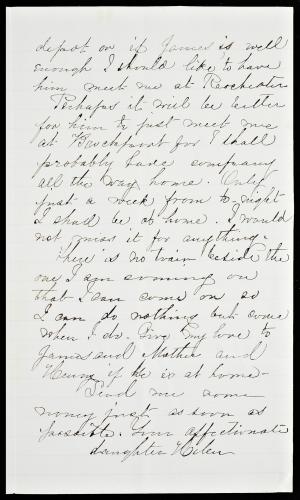 depot or if James is well
enough I should like to have
him meet me at Rochester
Perhaps it will be better
for him to just meet me
at Brockport for I shall
probably have company
all the way home. Only
just a week from to night
I shall be at home. I would
not miss it for anything.
There is no train beside the
one I am coming on
that I can come on so
I can do nothing but come
when I do. Give my love to
James and Mother and
Henry if he is at home-
Send me some
money just as soon as
possible. Your affectionate
daughter Helen